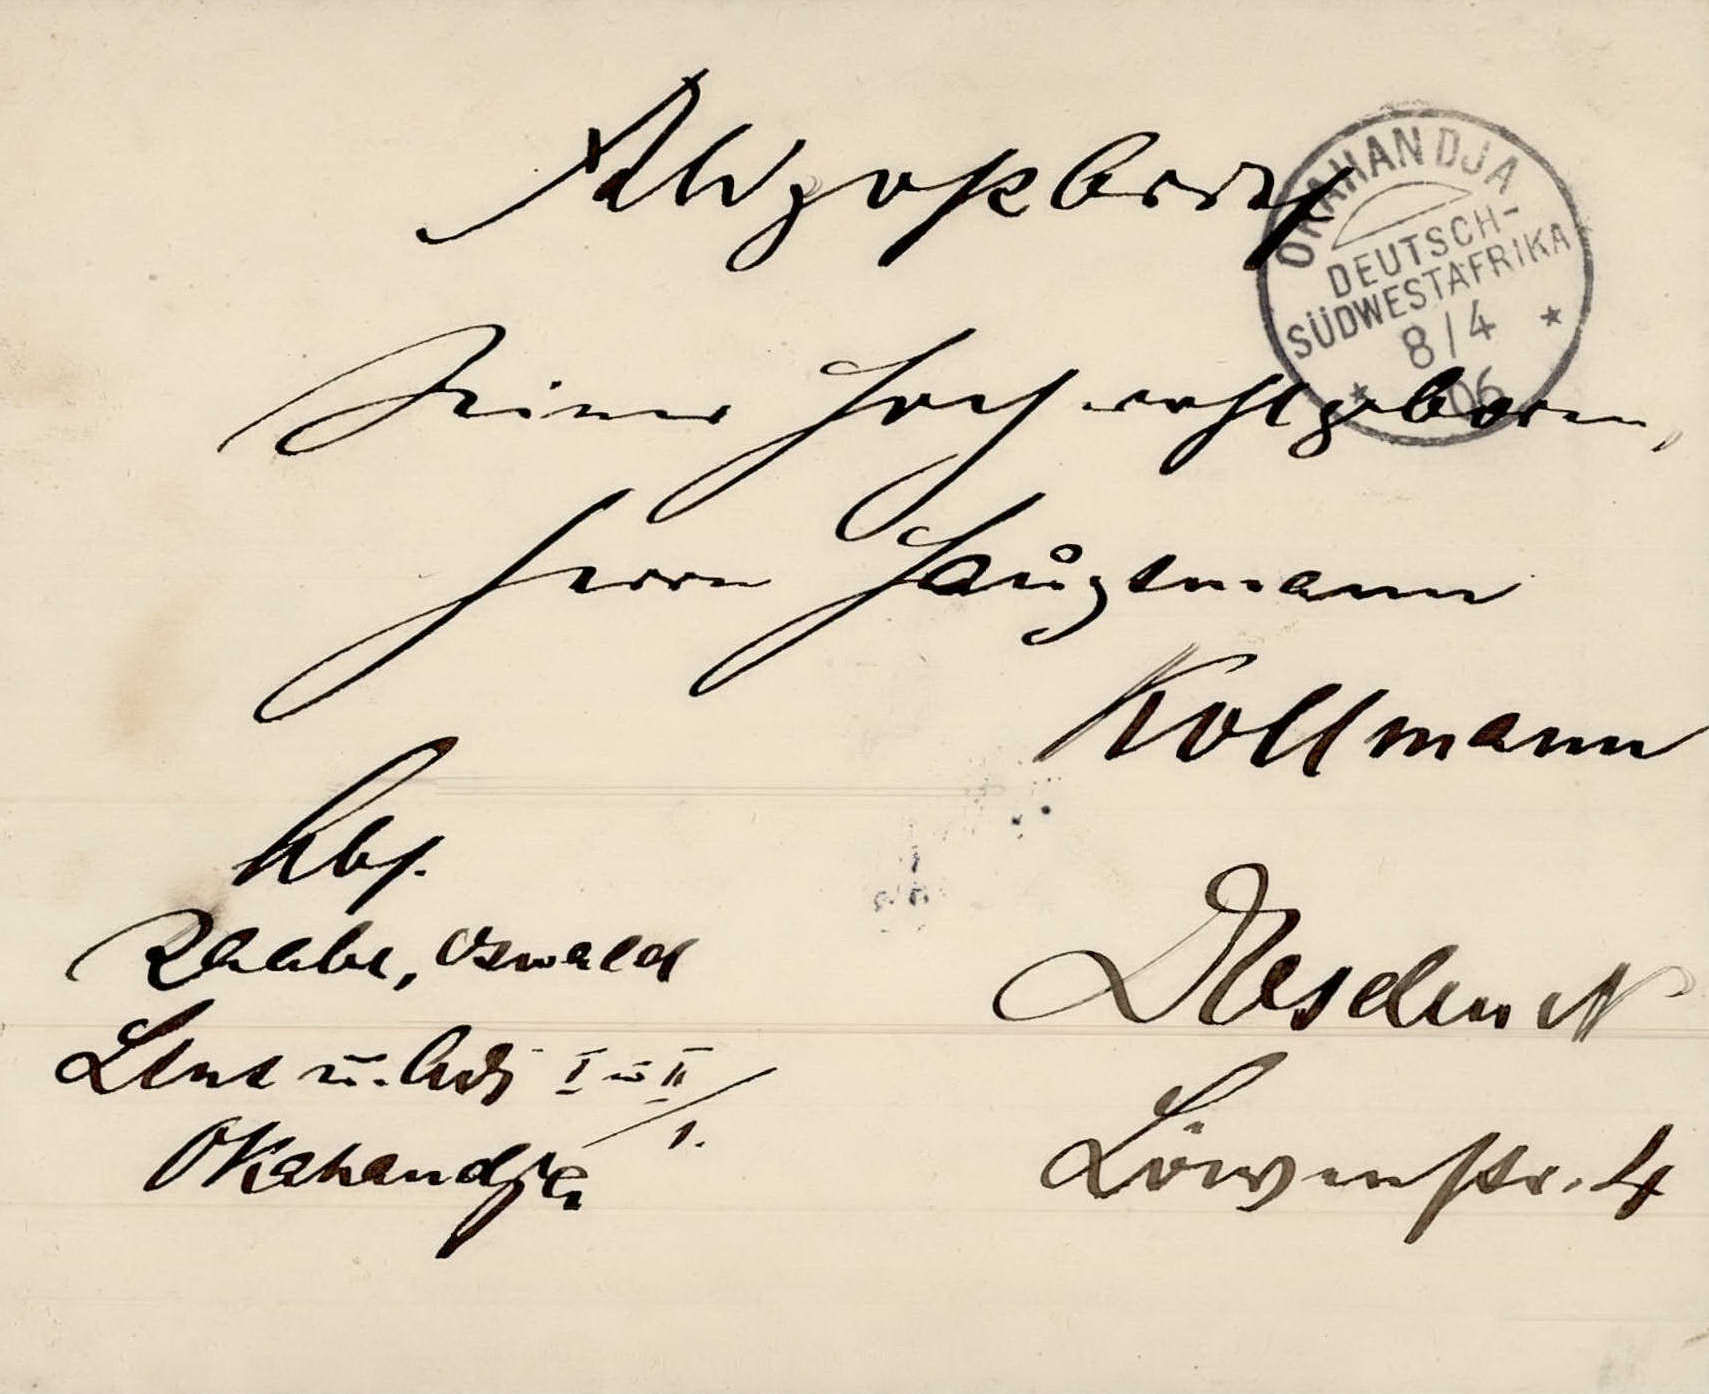 Feldpostbrief
OKAHANDJA
DEUTSCH-
SÜDWESTAFRIKA
8/4
06
Seiner Hochwohlgeboren,
Herrn Hauptmann
Kollmann
Abs.
Raabe, Oswald
Leut u. Adj I u II
/1.
Okahandja
Dresden N
Löwenstr. 4